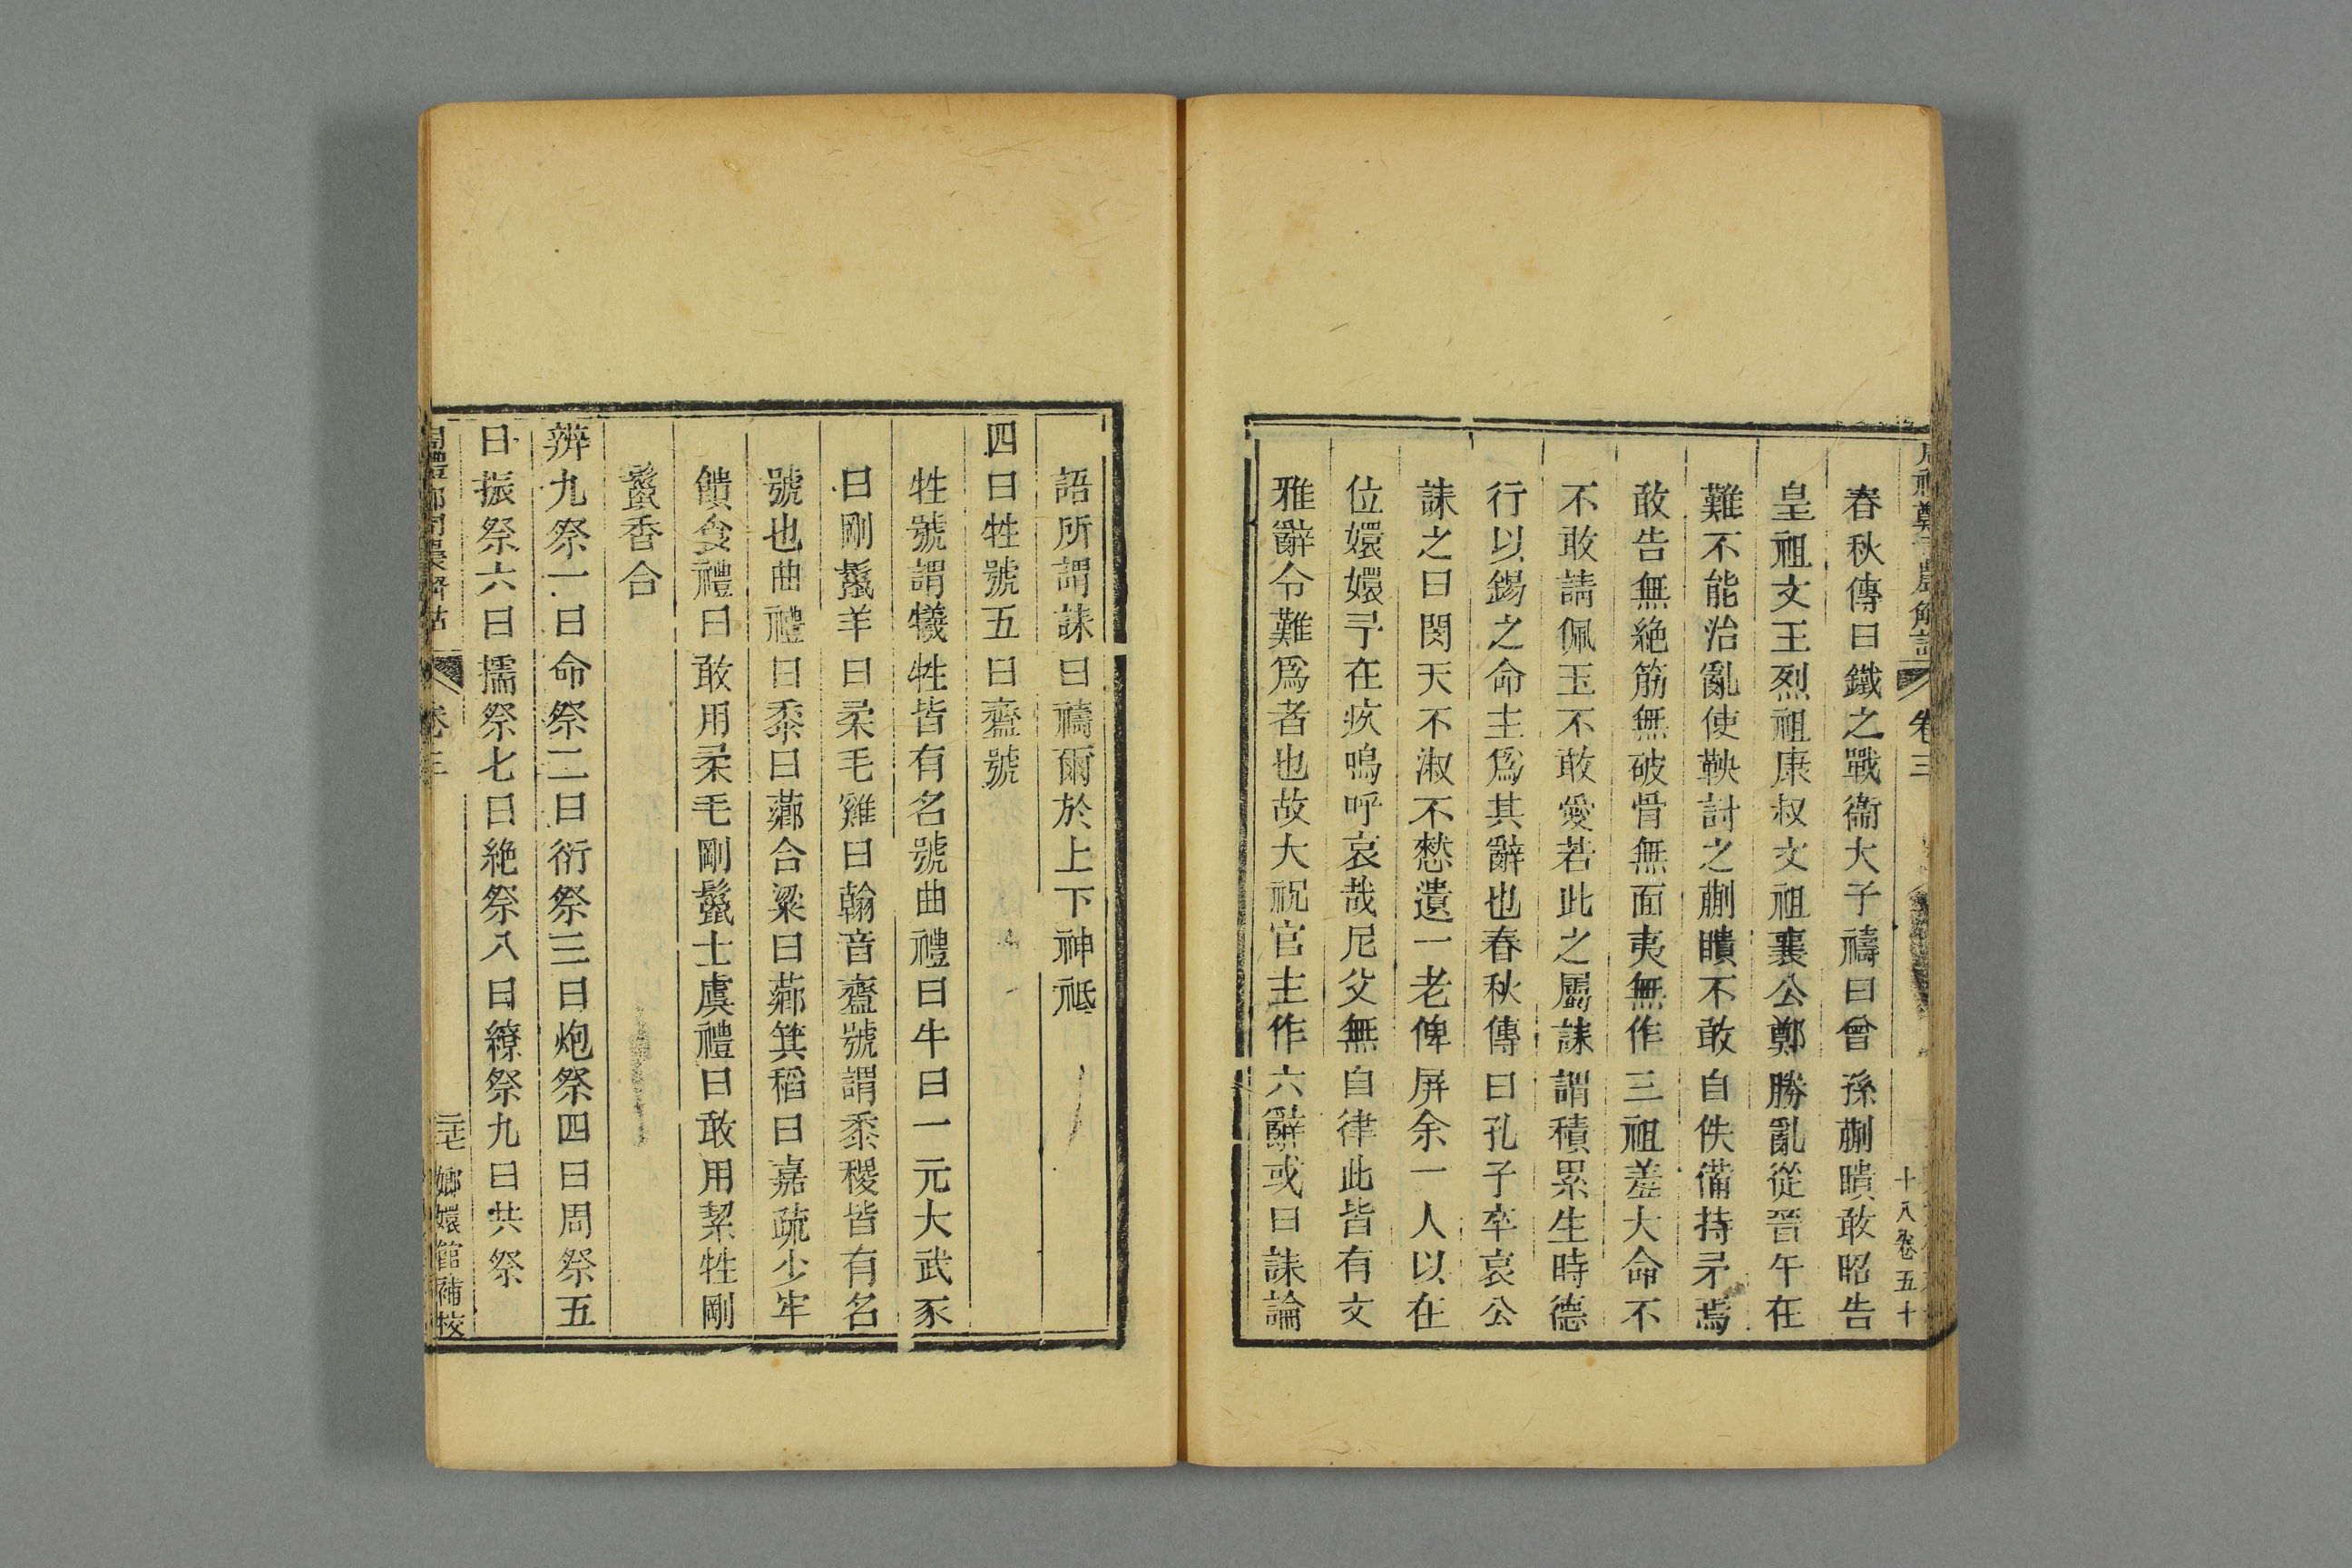 春秋傳曰鐵之戰衞大子禱曰曾孫蒯聵敢昭告
皇祖文王烈祖康叔文祖襄公鄭勝亂從晉午在
難不能治亂使鞅討之蒯聵不敢自佚備持矛焉
敢告無絶筋無破骨無面夷無作三祖羞大命不
不敢請佩玉不敢愛若此之屬誄謂積累生時德
行以錫之命主爲其辭也春秋傳曰孔子卒哀公
誄之曰閔天不淑不憖遺一老俾屏余一人以在
位嬛嬛予在疚嗚呼哀哉尼父無自律此皆有文
雅辭令難爲者也故大祝官主作六辭或曰誄論
語所謂誄曰禱爾於上下神祗
四曰牲號五曰齍號
牲號謂犧牲皆有名號曲禮曰牛曰一元大武豕
曰剛鬣羊曰柔毛雞曰翰音齍號謂黍稷皆有名
號也曲禮曰黍曰薌合粱曰薌箕稻曰嘉疏少牢
饋食禮曰敢用柔毛剛鬣士虞禮曰敢用絜牲剛
鬣香合
辨九祭一曰命祭二曰衍祭三曰炮祭四曰周祭五
曰振祭六曰擩祭七曰絶祭八曰繚祭九曰共祭
卷三
嫏嬛館補校